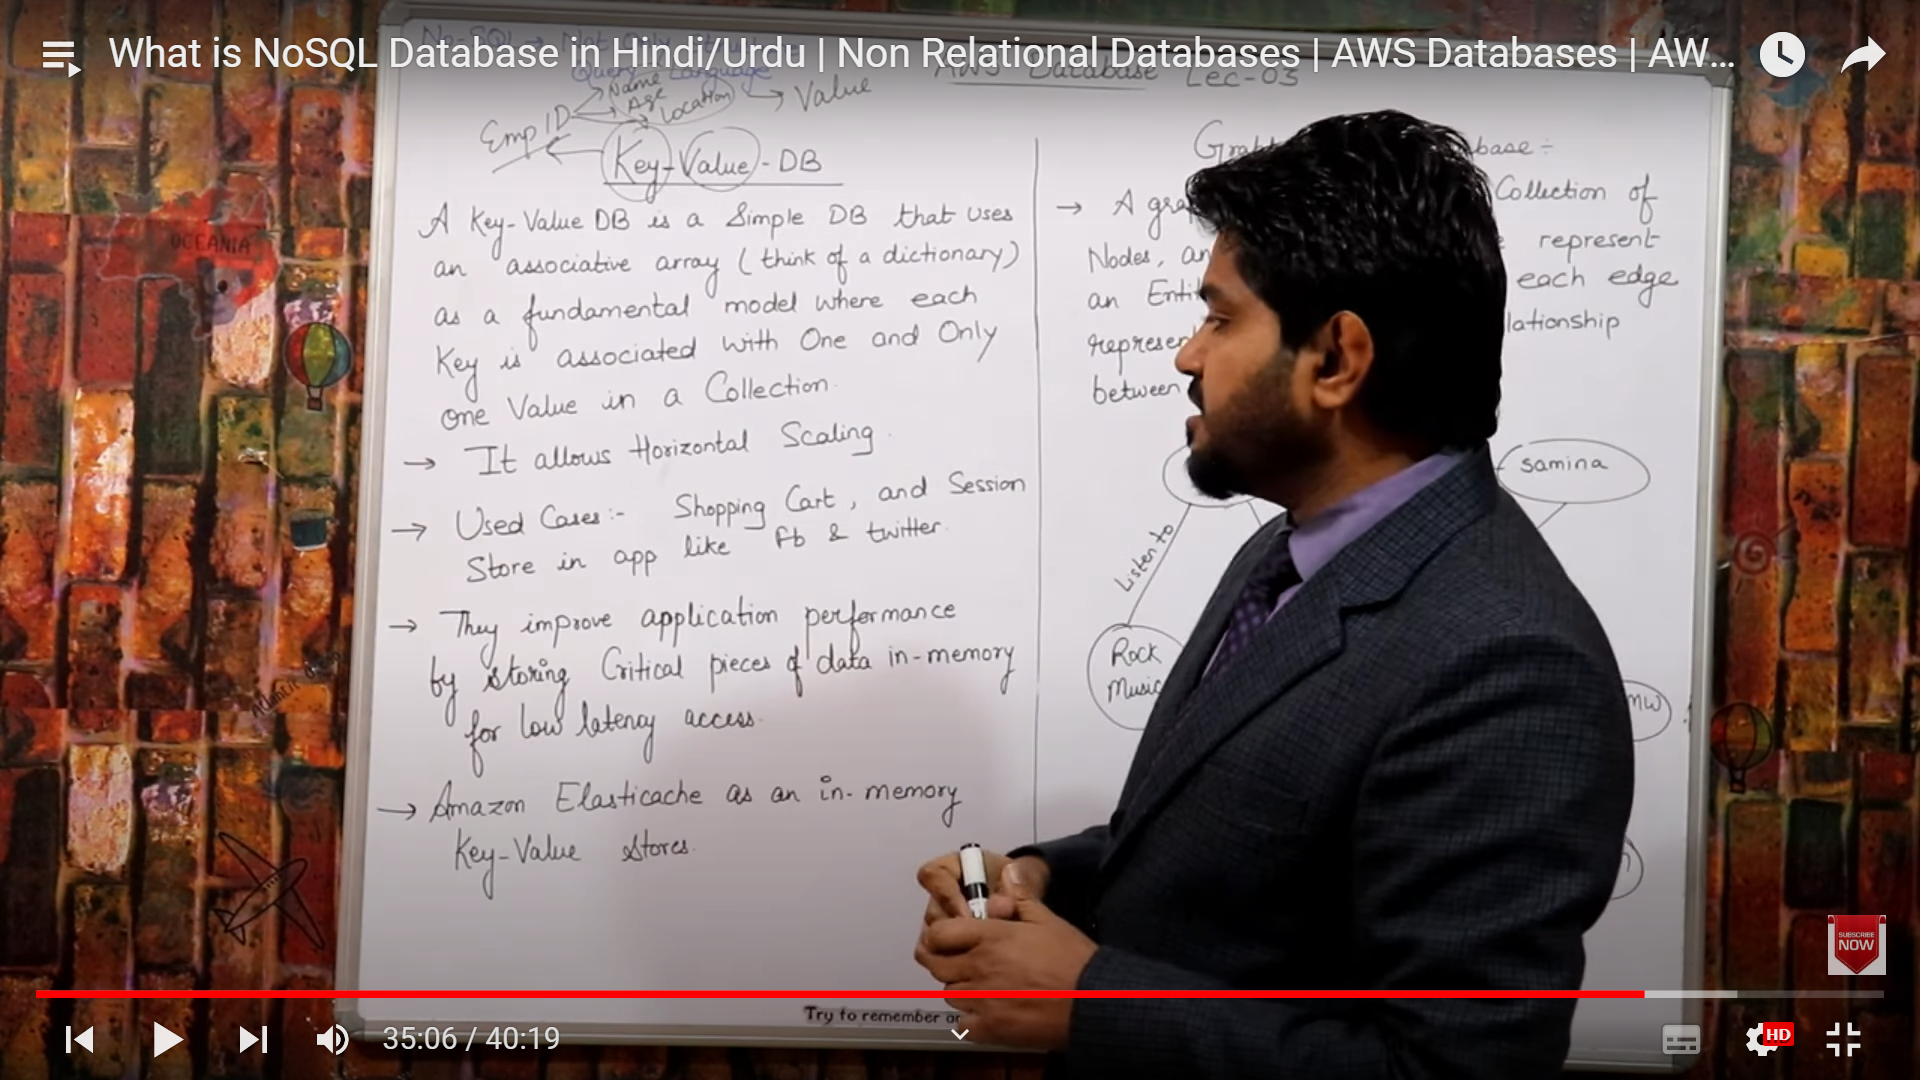 What is NoSQL Database in Hindi/Urdu | Non Relational Databases | AWS Databases | AW...
Query Language
AWS Database Lec-03
Name
Age
Location
Value
Emp ID
Key-Value-DB
A Key-Value DB is a Simple DB that uses
an associative array (think of a dictionary)
as a fundamental model where each
Key is associated with One and Only
One Value in a Collection.
→ It allows Horizontal Scaling.
→ Used Cases:- Shopping Cart, and Session
Store in app like fb & twitter.
→ They improve application performance
by storing Critical pieces of data in-memory
for low latency access.
→ Amazon Elasticache as an in-memory
Key-Value Stores.
→ A Collection of
Nodes, represent
an each edge
between
Samina
Listen to
Rock
Music
OCEANIA
SUBSCRIBE
NOW
Try to remember
35:06 / 40:19
HD